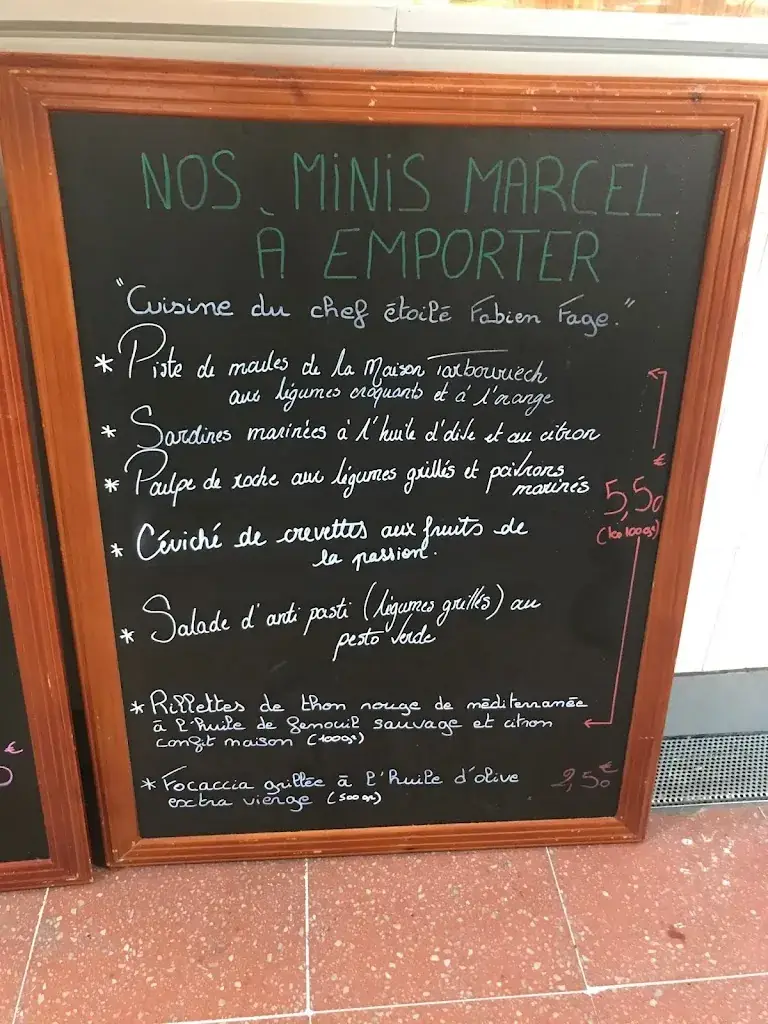 NOS MINIS MARCEL
À EMPORTER
"Cuisine du chef étoilé Fabien Fage."
* Piste de moules de la Maison Tarbouriech
aux légumes croquants et à l'orange
* Sardines marinées à l'huile d'olive et au citron
* Poulpe de roche aux légumes grillés et poivrons
marinés
* Céviché de crevettes aux fruits de
la passion.
* Salade d'anti pasti (légumes grillés) au
pesto verde
€
5,50
* Rillettes de thon rouge de méditerranée
à l'huile de fenouil sauvage et citron
confit maison (100gr)
* Focaccia grillée à l'huile d'olive
extra vierge (500gr)
2,50€
€